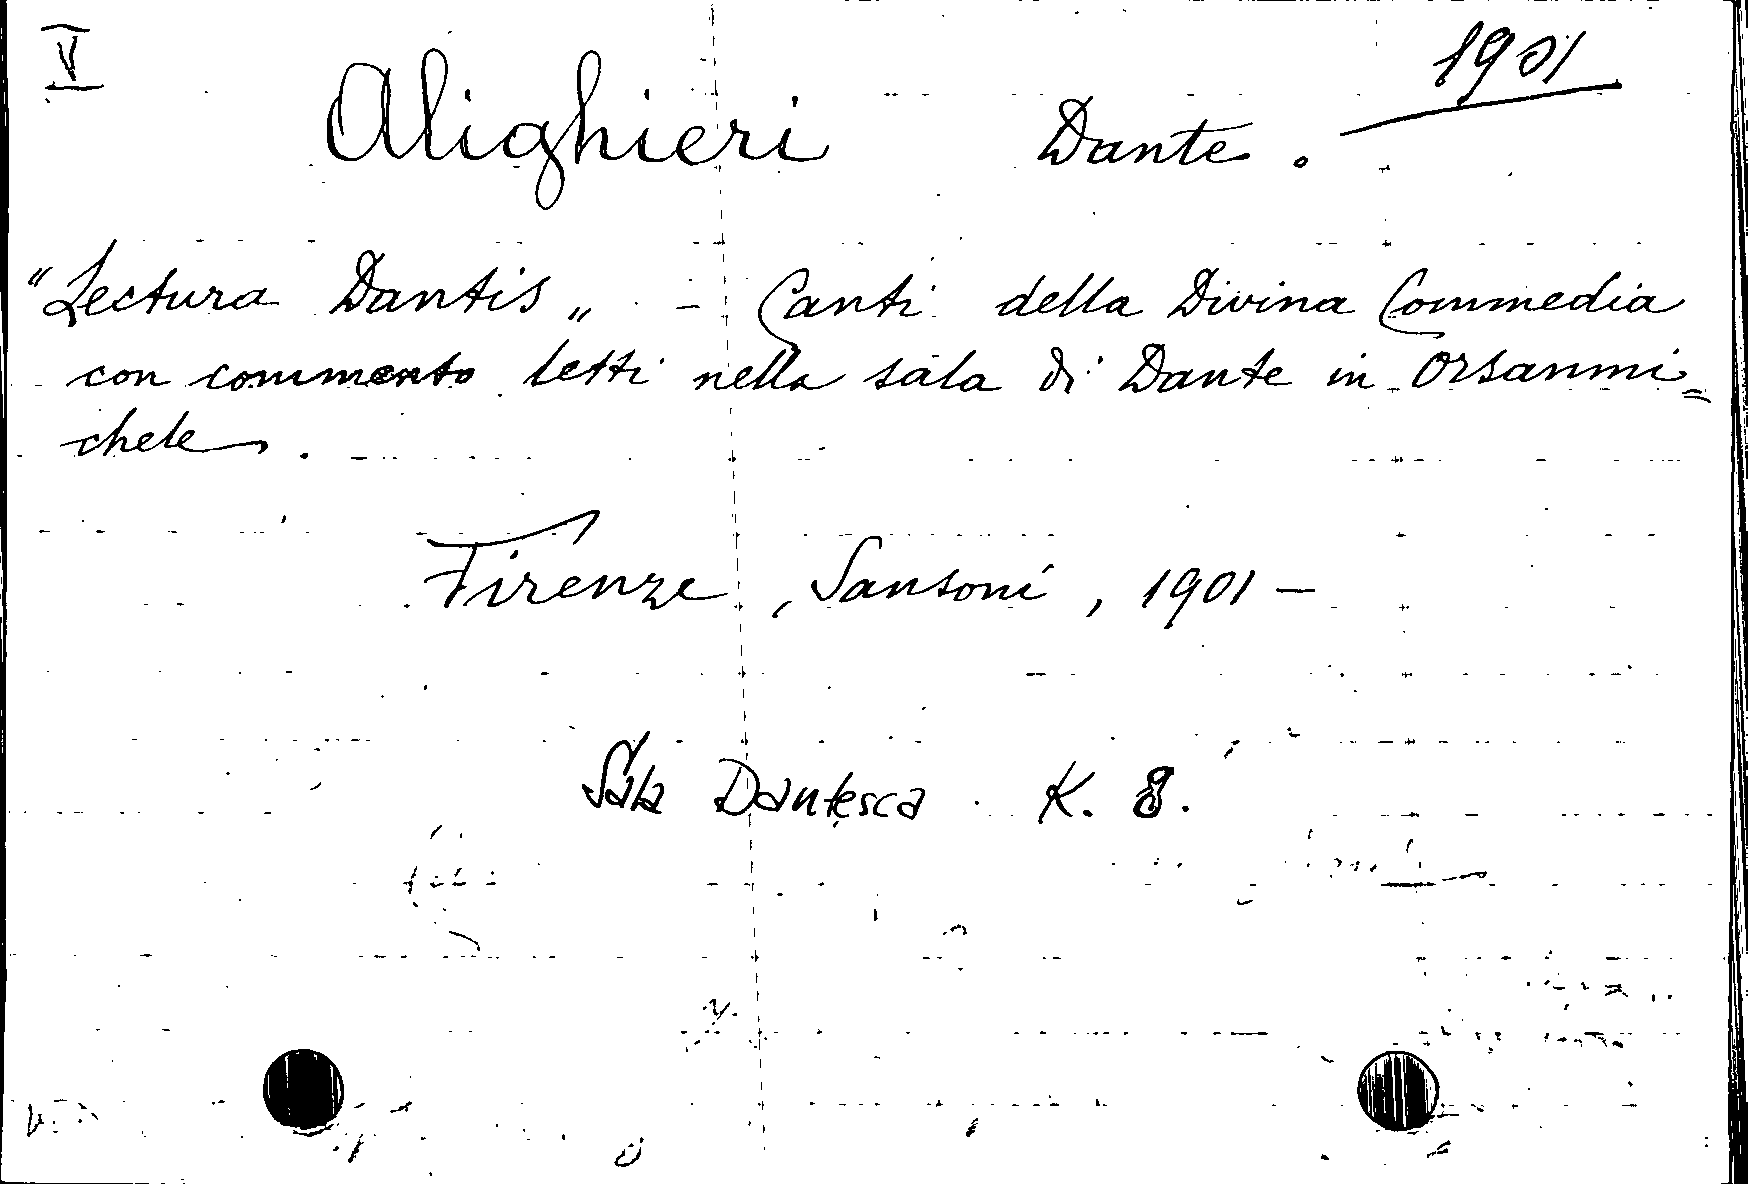 V
1901
Alighieri Dante.
"Lectura Dantis„ - Canti della Divina Commedia
con commento letti nella sala di Dante in Orsanmi=
chele.
Firenze, Sansoni, 1901 —
Sala Dantesca K. 8.